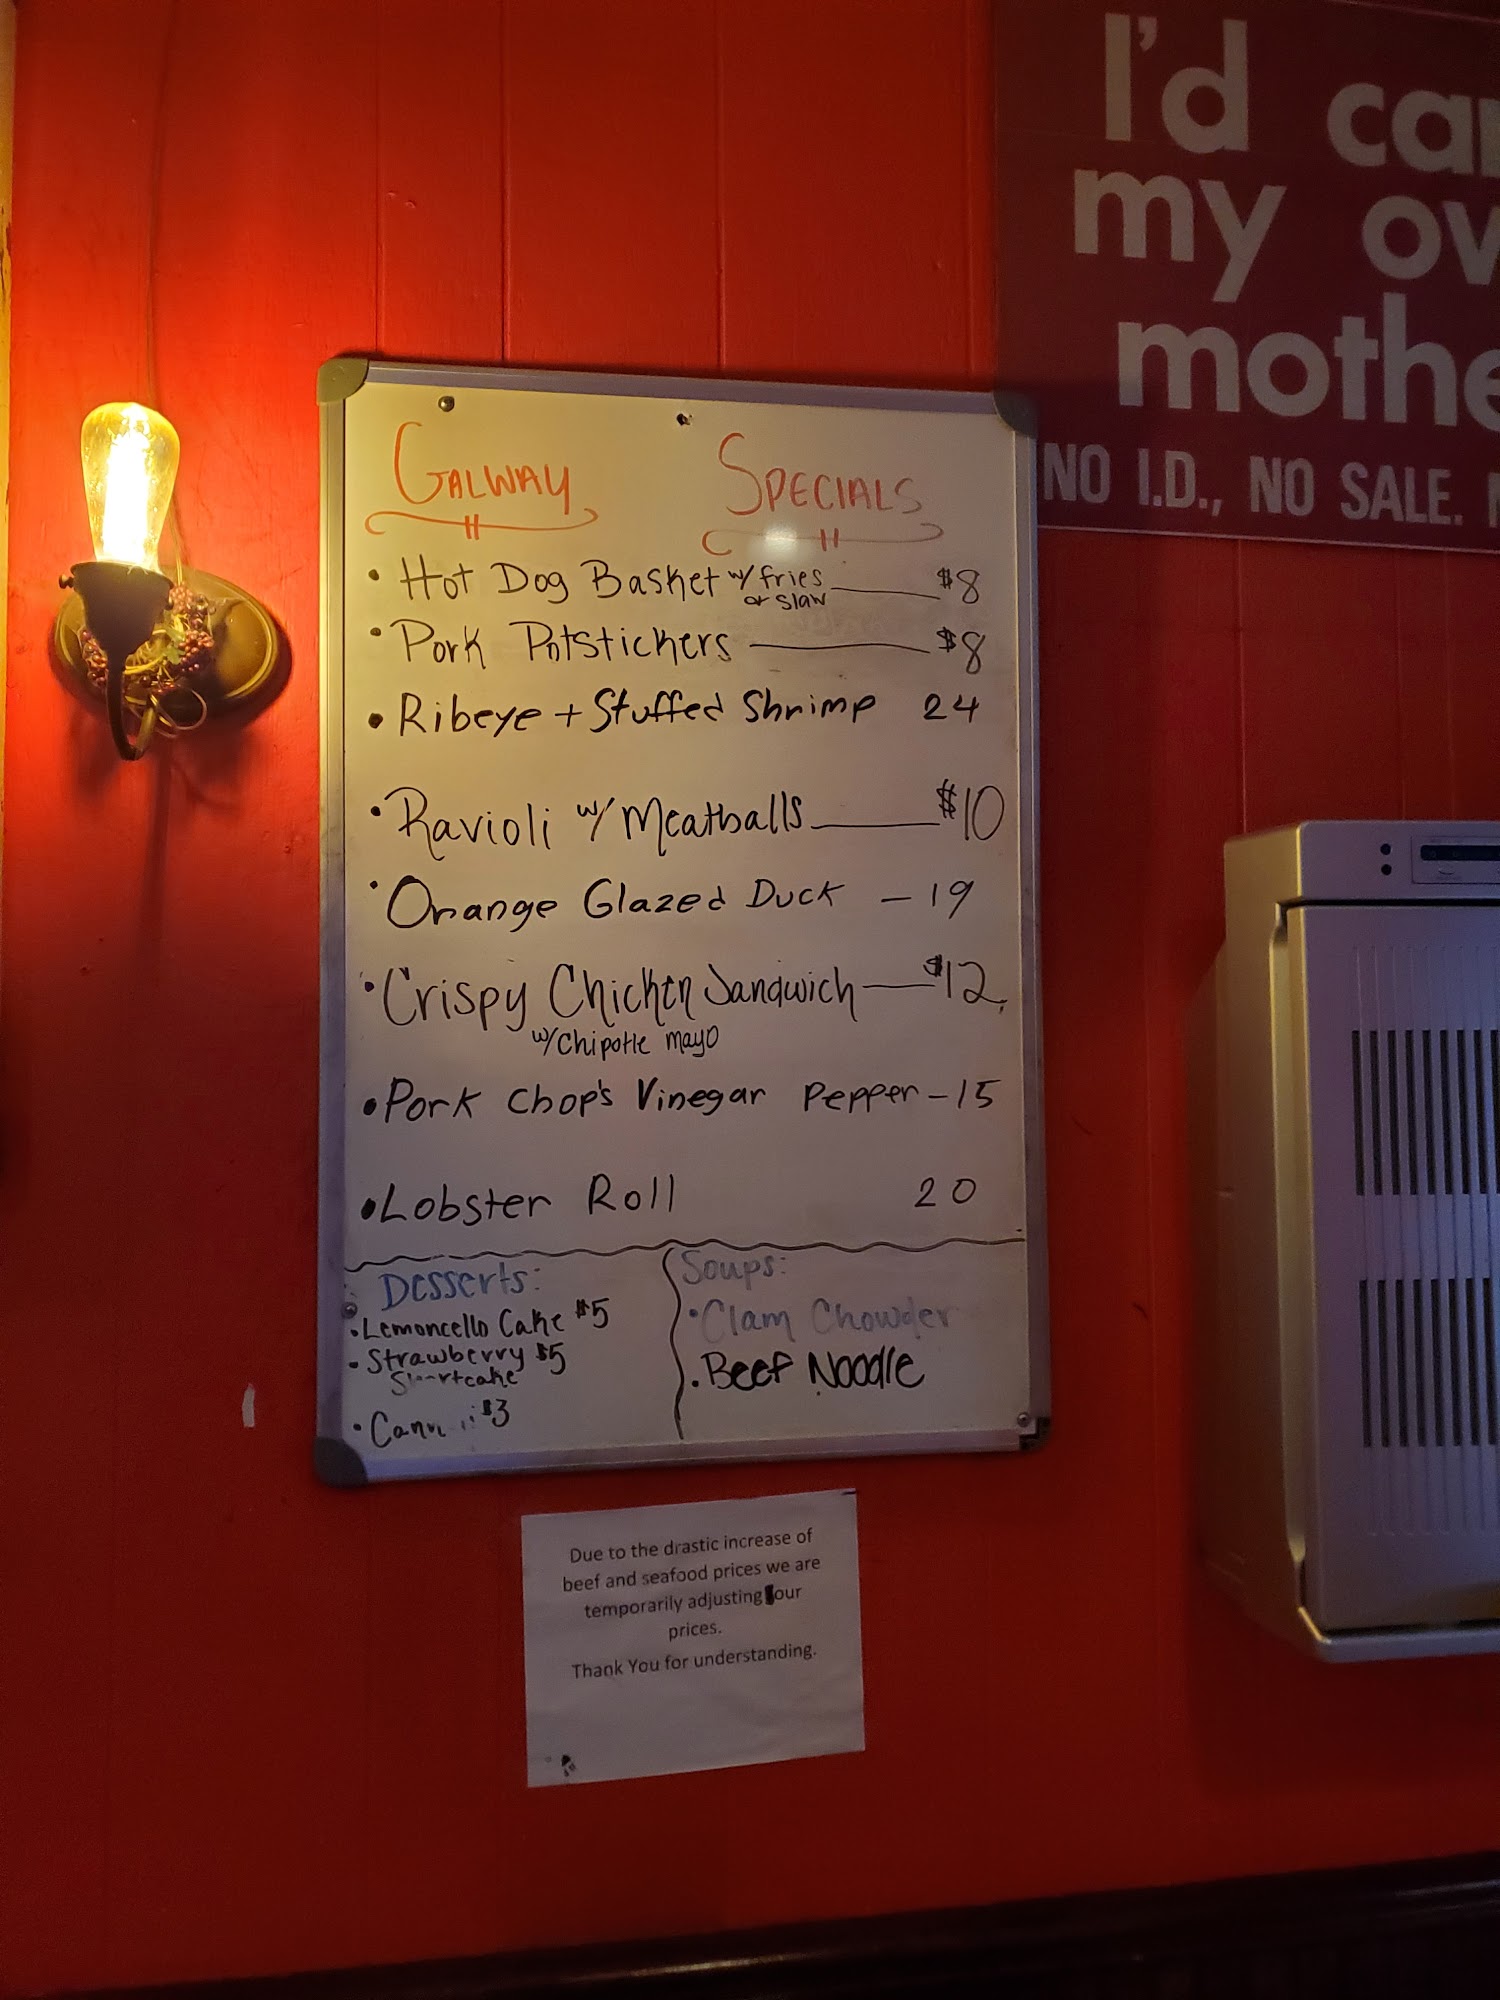 I'd
my
NO I.D., NO SALE.
GALWAY SPECIALS
• Hot Dog Basket w/ fries or slaw $8
• Pork Potstickers $8
• Ribeye + Stuffed Shrimp 24
• Ravioli w/ Meatballs $10
• Orange Glazed Duck - 19
• Crispy Chicken Sandwich $12
w/ Chipotle mayo
• Pork Chop's Vinegar Pepper - 15
• Lobster Roll 20
Desserts:
• Lemoncello Cake $5
• Strawberry $5
Shortcake
• $3
Soups:
• Clam Chowder
• Beef Noodle
Due to the drastic increase of
beef and seafood prices we are
temporarily adjusting our
prices.
Thank You for understanding.